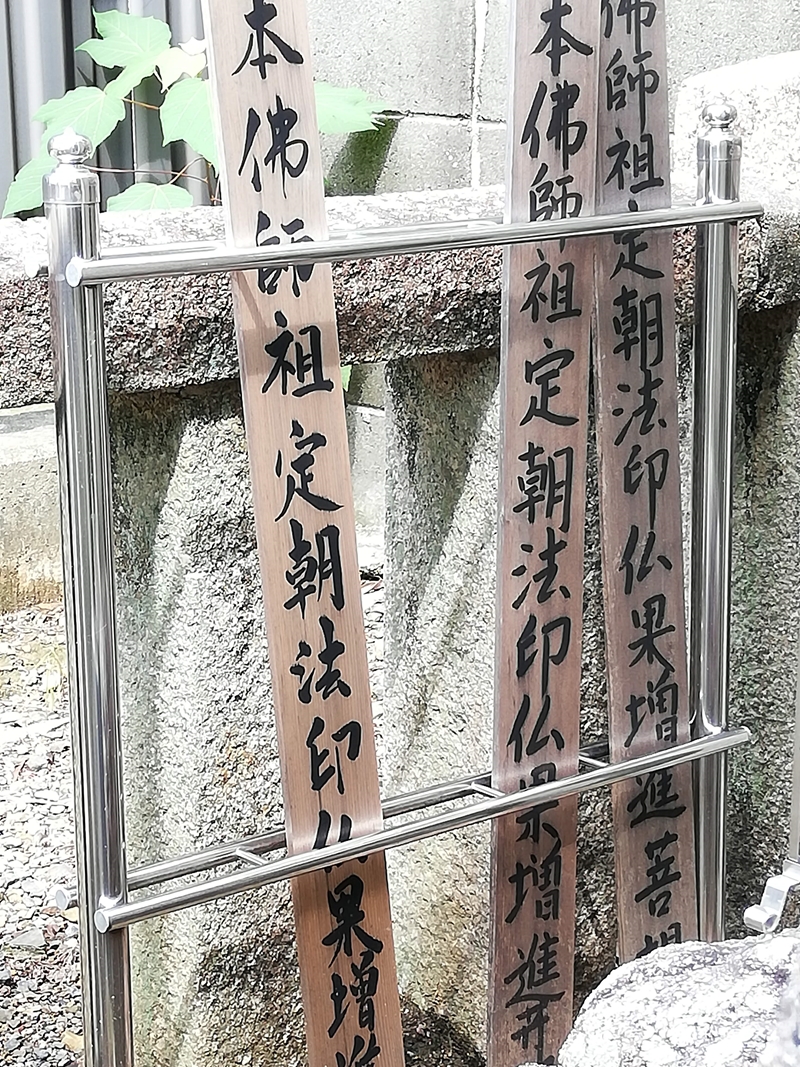 佛師祖定朝法印仏果増進菩
本佛師祖定朝法印仏果増進
本佛師祖定朝法印仏果増進